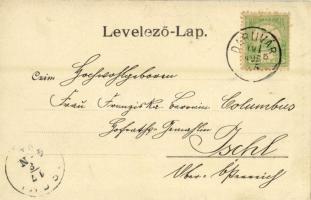 Levelező-Lap.
DARUVÁR
Czim Hochwohlgeboren
Frau Franziska Baronin Columbus
Hofraths-Gemahlin
Ischl
Ober-Österreich